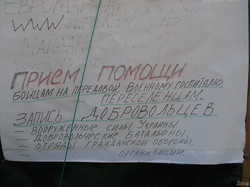 WWW
ПРИЕМ ПОМОЩИ
БОЙЦАМ НА ПЕРЕДОВОЙ, ВОЕННОМУ ГОСПИТАЛЮ,
ПЕРЕСЕЛЕНЦАМ.
ЗАПИСЬ ДОБРОВОЛЬЦЕВ
- ВООРУЖЕННЫЕ СИЛЫ УКРАИНЫ
- ДОБРОВОЛЬЧЕСКИЕ БАТАЛЬОНЫ,
- ОТРЯДЫ ГРАЖДАНСКОЙ ОБОРОНЫ,